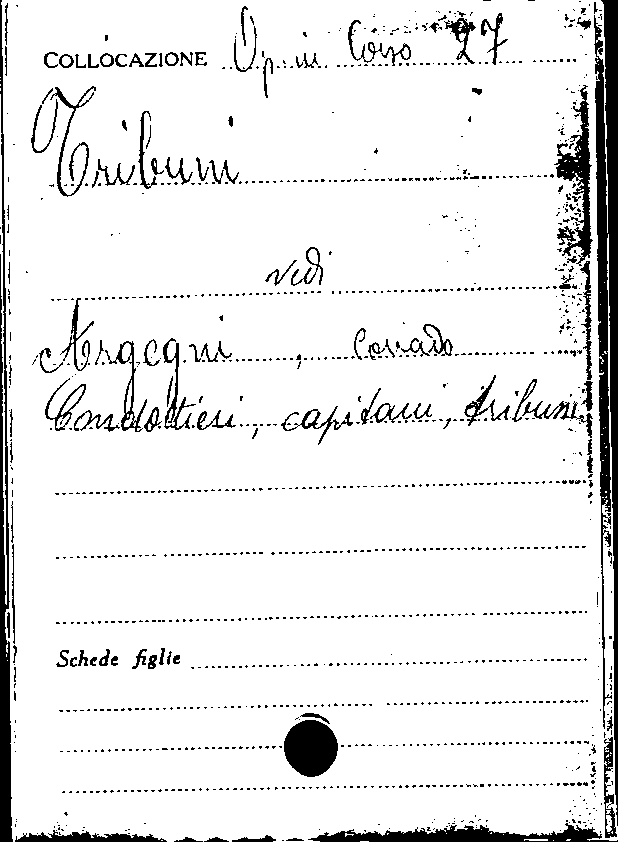 COLLOCAZIONE Op in Corso 27
Tribuni
vedi
Argegni, Corrado
Condottieri, capitani, tribuni
Schede figlie